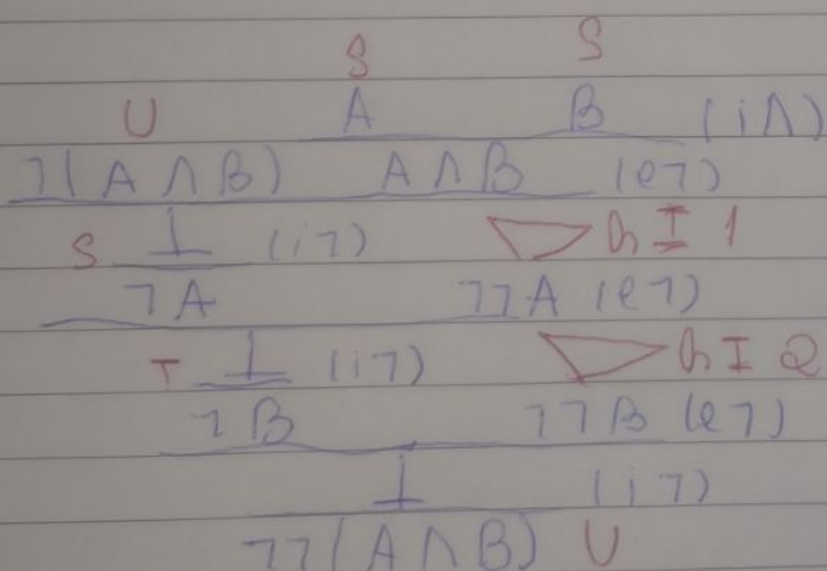 S S
U A B (i∧)
¬(A ∧ B) A ∧ B (e¬)
S ⊥ (i¬) h I 1
¬A ¬¬A (e¬)
T ⊥ (i¬) h I 2
¬B ¬¬B (e¬)
⊥ (i¬)
¬¬(A ∧ B) U